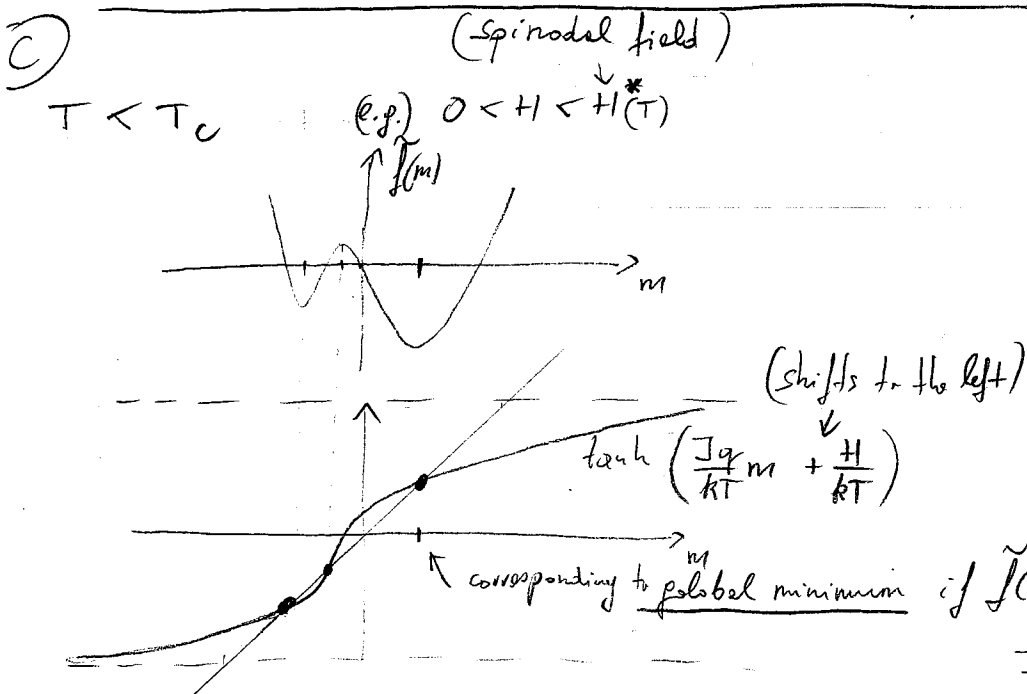 C
(spinodal field)
T < T_c (e.g.) 0 < H < H*(T)
f̃(m)
m
(shifts to the left)
tanh (Jq/kT m + H/kT)
m
corresponding to global minimum if f̃(